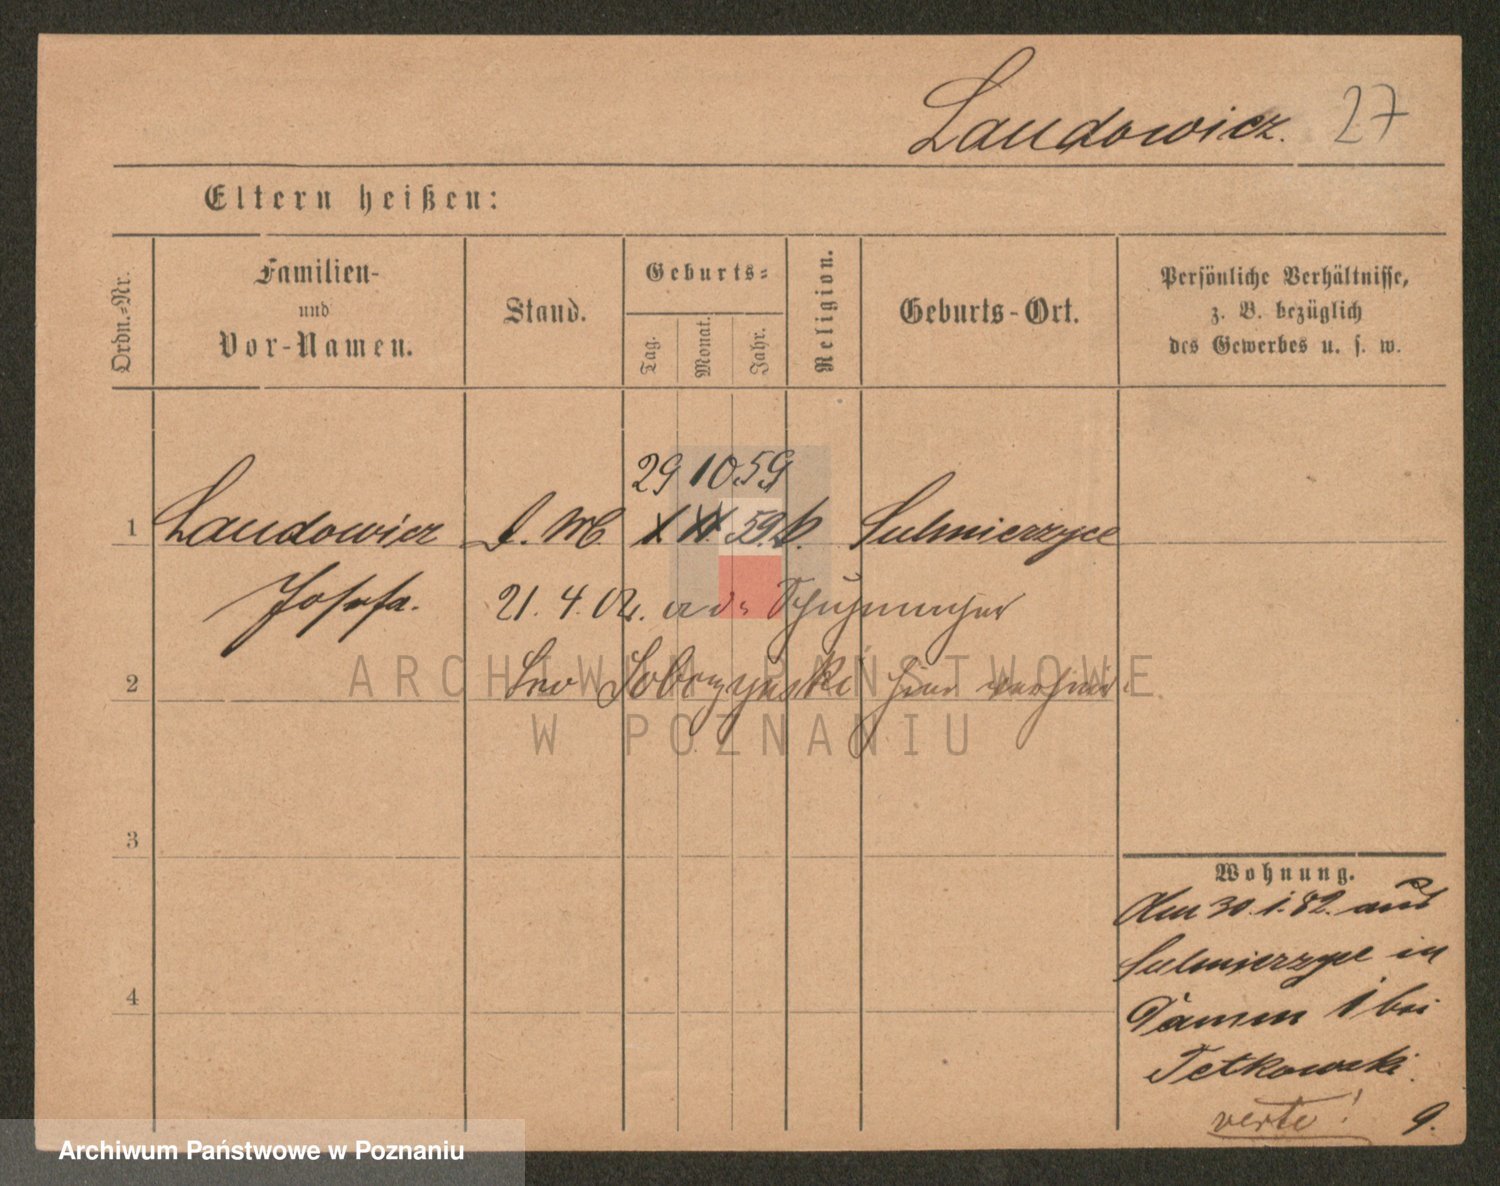 Laudowicz. 27
Eltern heißen:
Ordn.=Nr.
Familien-
und
Vor-Namen.
Stand.
Geburts=
Tag.
Monat.
Jahr.
Religion.
Geburts-Ort.
Persönliche Verhältnisse,
z. B. bezüglich
des Gewerbes u. s. w.
29 10 59
1 Laudowicz D. M. X XII 59. k. Sulmierzyce
Josefa. 21. 4. 02. a. d. Schuhmacher
2 Leo Sobczynski hier verh
3
4
Wohnung.
Am 30. 1. 82. aus
Sulmierzyce in
Damm 1 bei
Tetkowski.
verte! 9.
ARCHIWUM PAŃSTWOWE
W POZNANIU
Archiwum Państwowe w Poznaniu